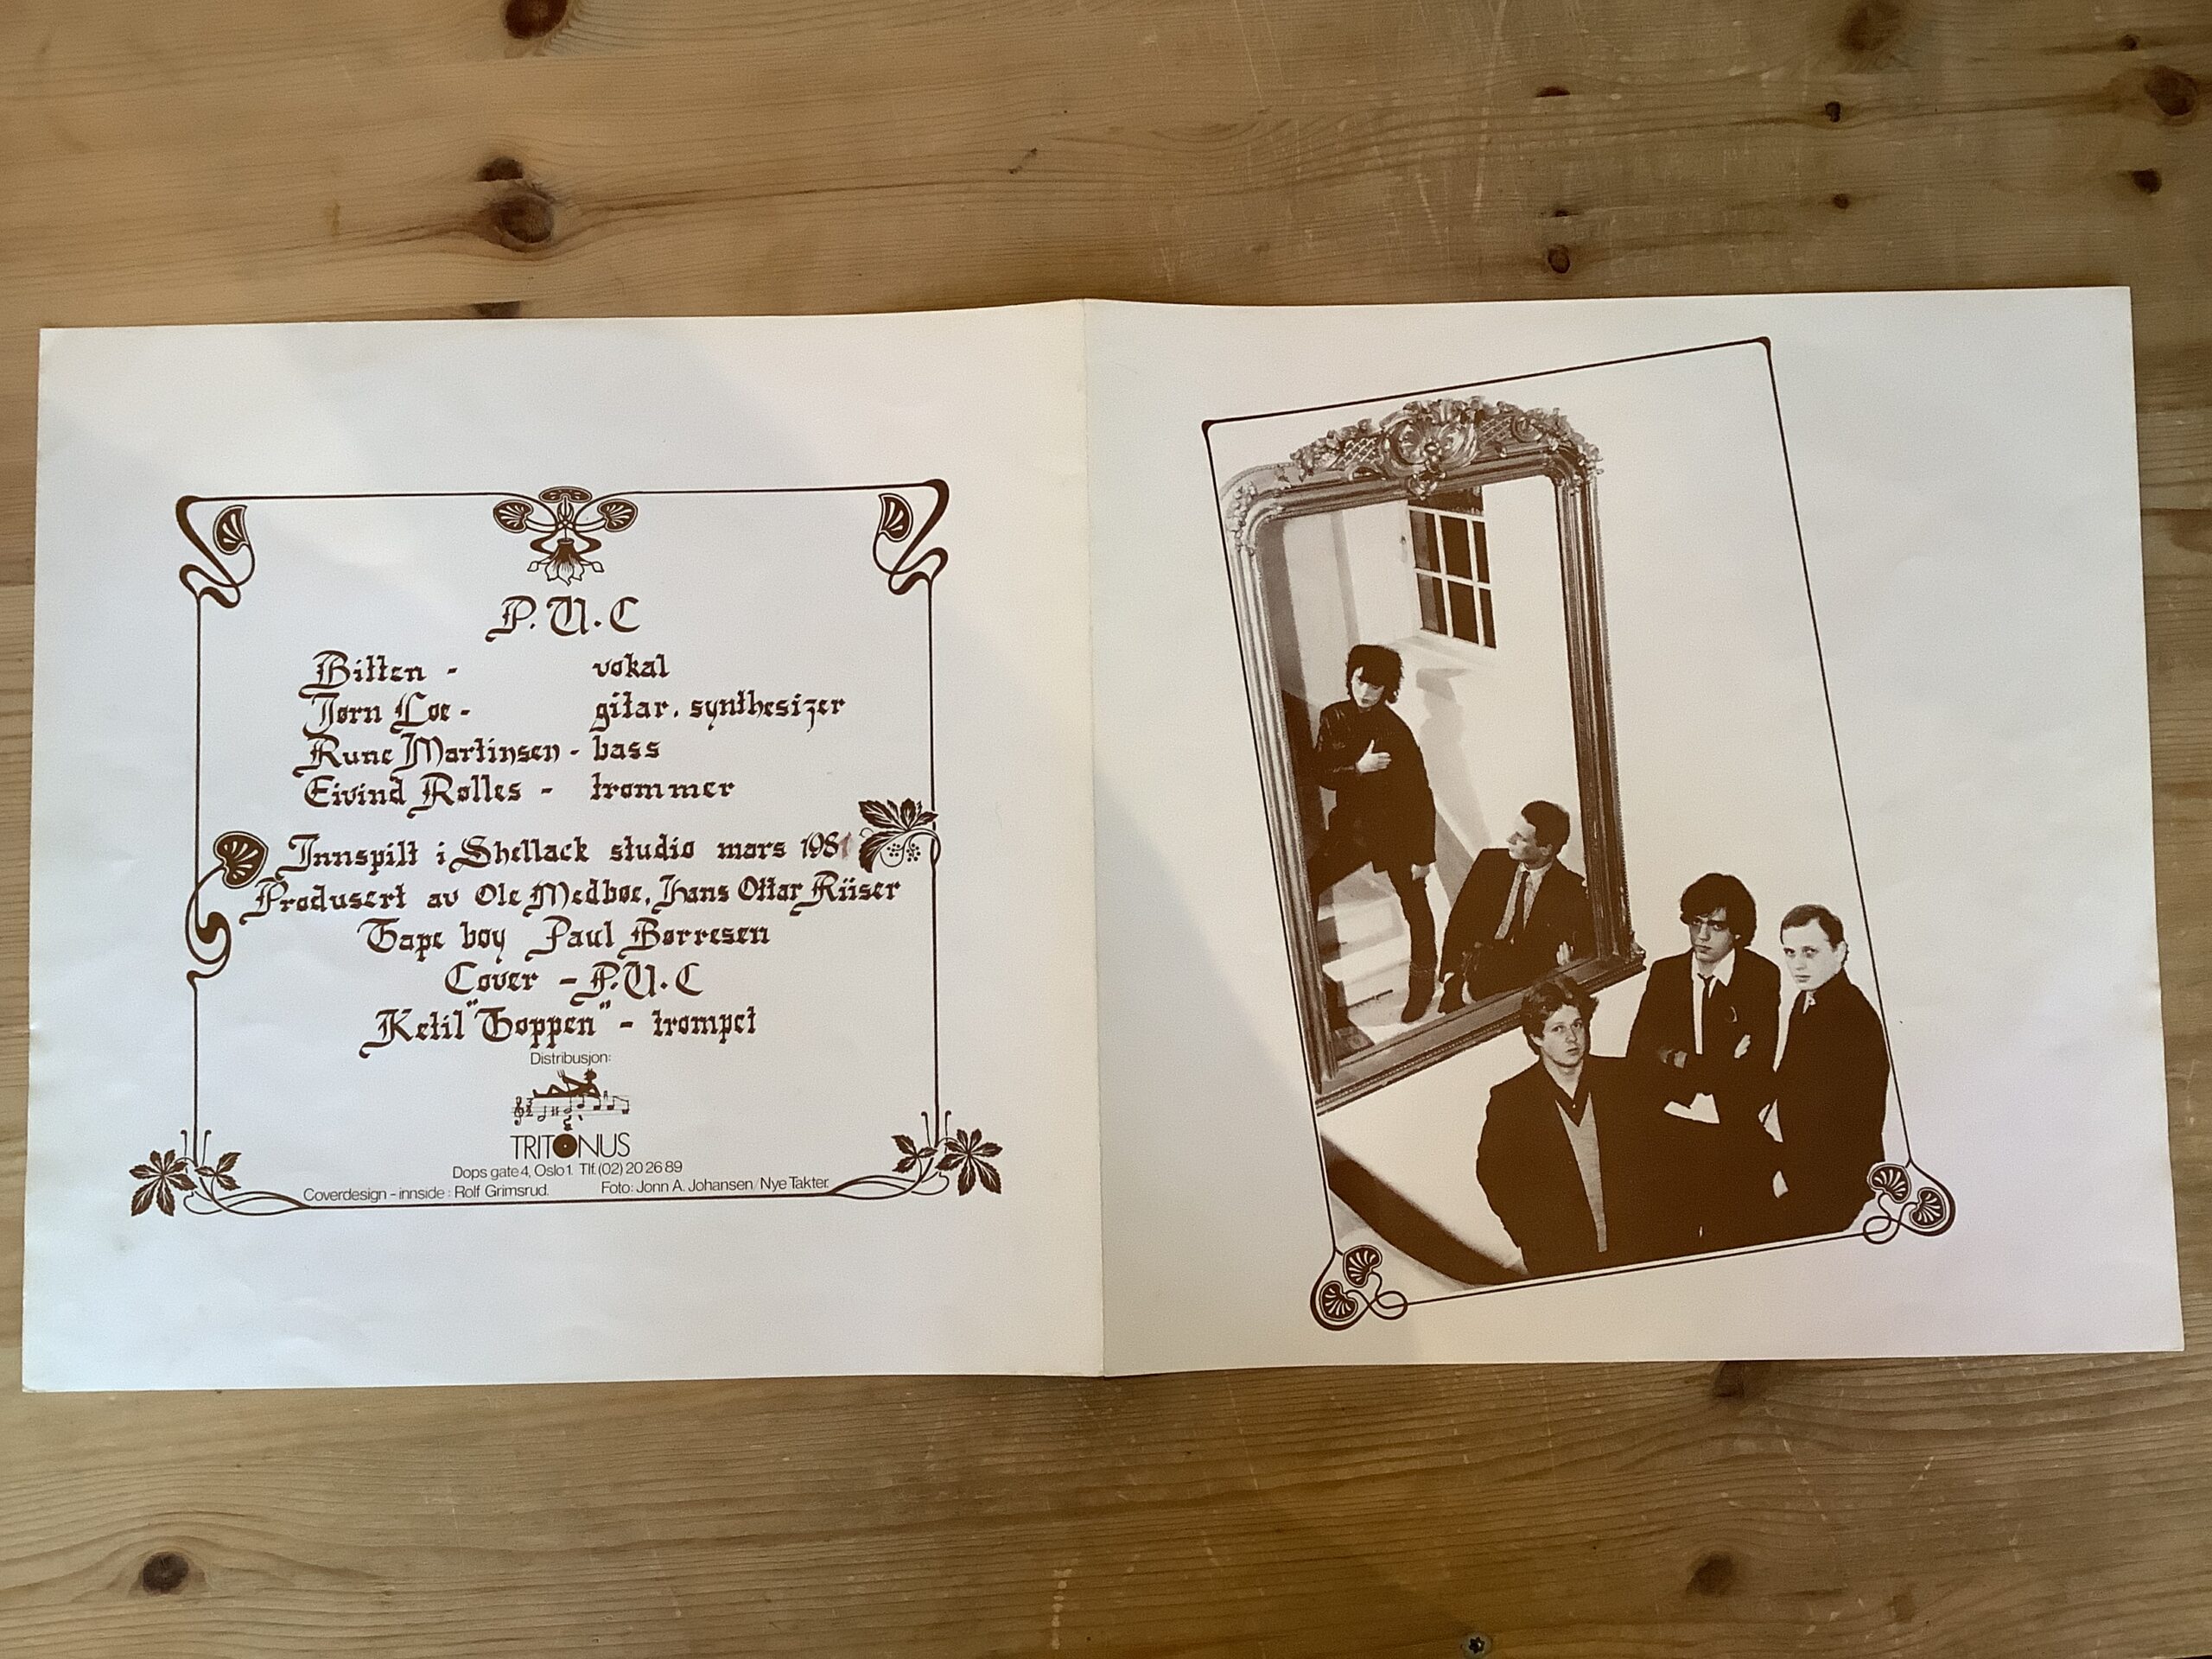 P.U.C
Bitten - vokal
Jørn Loe - gitar, synthesizer
Rune Martinsen - bass
Eivind Rølles - trommer
Innspilt i Shellack studio mars 1981
Produsert av Ole Medbøe, Hans Ottar Riiser
Tape boy Paul Børresen
Cover - P.U.C
Ketil "Toppen" - trompet
Distribusjon:
TRITONUS
Dops gate 4, Oslo 1. Tlf. (02) 20 26 89
Coverdesign - innside: Rolf Grimsrud. Foto: Jonn A. Johansen/Nye Takter.